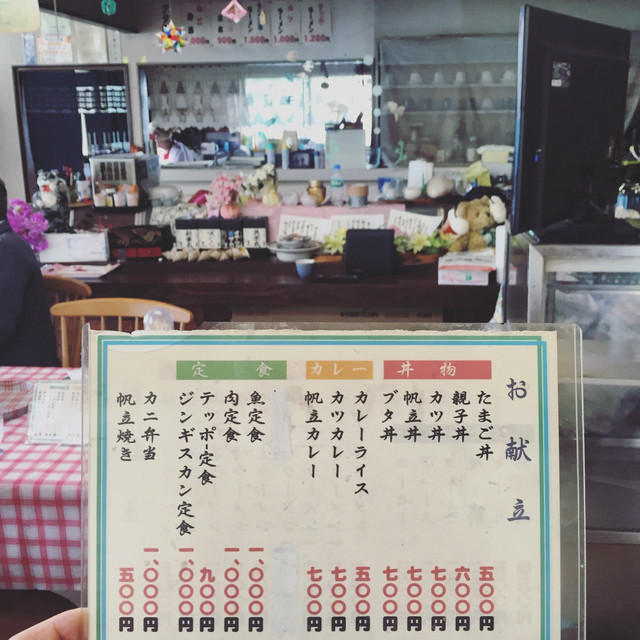 お献立
丼物
たまご丼 五〇〇円
親子丼 六〇〇円
カツ丼 七〇〇円
帆立丼 七〇〇円
ブタ丼 七〇〇円
カレー
カレーライス 五〇〇円
カツカレー 七〇〇円
帆立カレー 七〇〇円
定食
魚定食 一、〇〇〇円
肉定食 一、〇〇〇円
テッポ定食 九〇〇円
ジンギスカン定食 一、〇〇〇円
カニ弁当 一、〇〇〇円
帆立焼き 五〇〇円